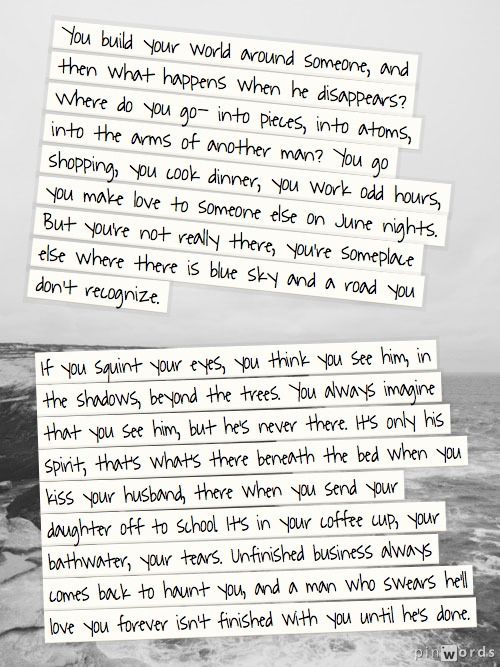 You build your world around someone, and
then what happens when he disappears?
Where do you go- into pieces, into atoms,
into the arms of another man? You go
shopping, you cook dinner, you work odd hours,
you make love to someone else on June nights.
But you're not really there, you're someplace
else where there is blue sky and a road you
don't recognize.
If you squint your eyes, you think you see him, in
the shadows, beyond the trees. You always imagine
that you see him, but he's never there. It's only his
spirit, that's what's there beneath the bed when you
kiss your husband, there when you send your
daughter off to school It's in your coffee cup, your
bathwater, your tears. Unfinished business always
comes back to haunt you, and a man who swears he'll
love you forever isn't finished with you until he's done.
pinwords